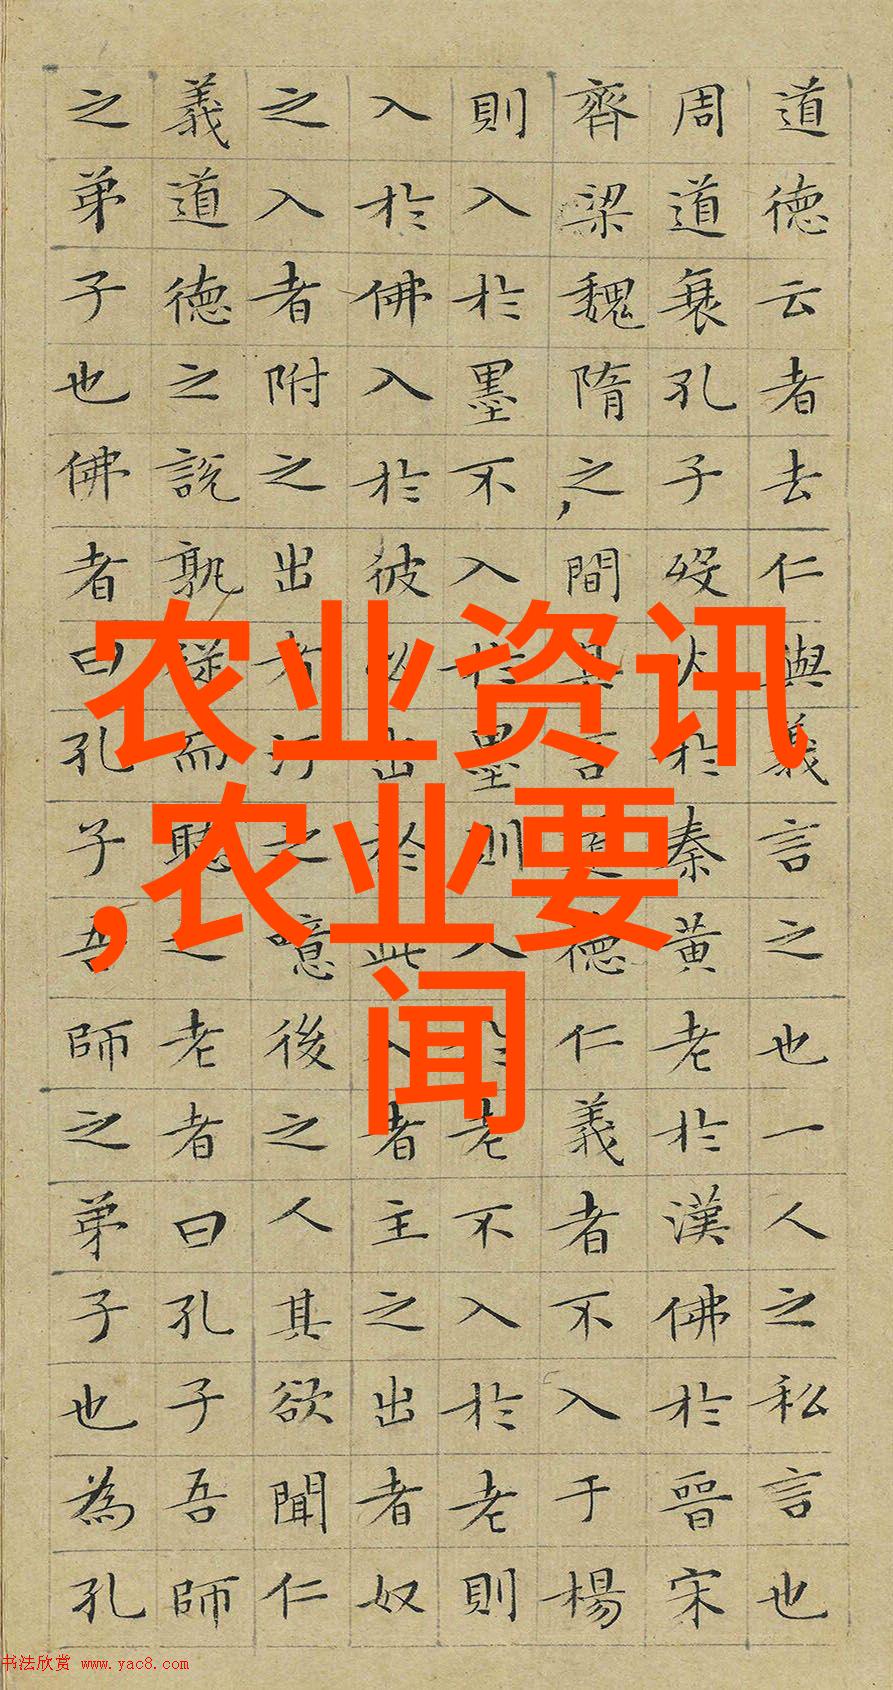 农业资讯
,农业要
闻
道德云者去仁與義言之也一人之私言也
周道衰孔子歿火於秦黄老於漢佛於晉宋
齊梁魏隋之間其言德仁義者不入于楊
則入於墨不入於墨則入於老不入於老則
入於佛入於彼必出於此入者主之出者奴
之入者附之出者汙之噫後之人其欲聞仁
義道德之說孰從而聽之老者曰孔子吾師
之弟子也佛者曰孔子吾師之弟子也為孔
书法欣赏 www.yac8.com